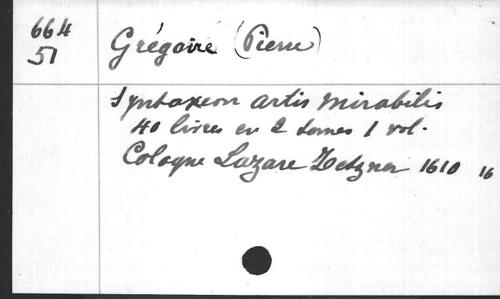 664
51
Grégoire (Pierre)
Syntaxeon artis mirabilis
40 livres en 2 tomes 1 vol.
Cologne Lazare Zetzner 1610 16